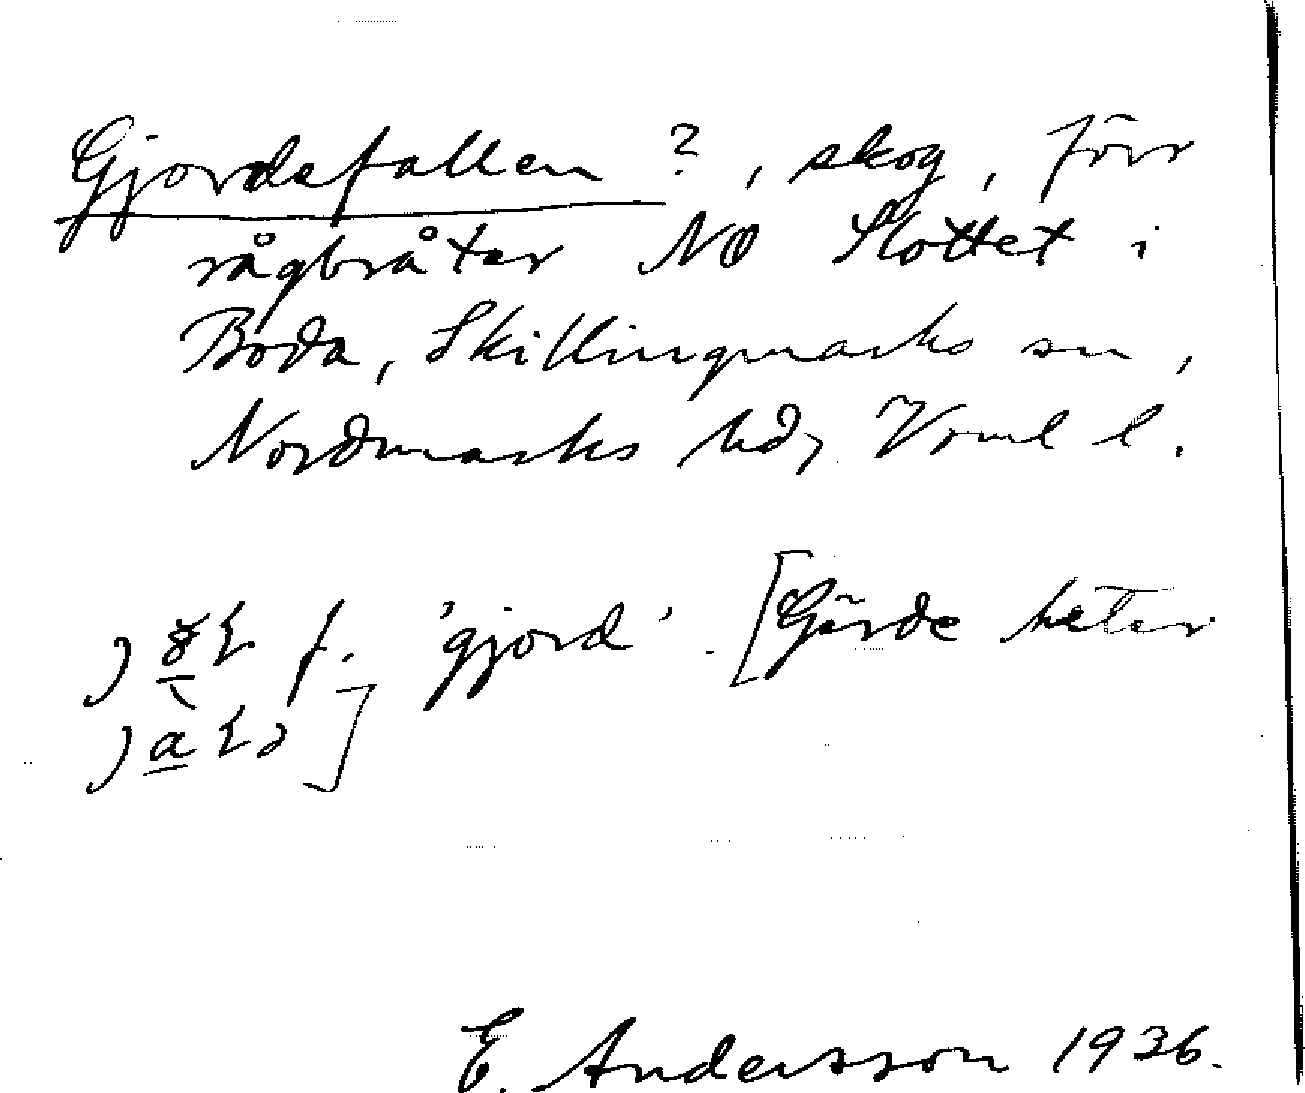 Gjordefallen ?, skog, förr
rågbråter NO Slottet i
Boda, Skillingmarks sn,
Nordmarks hd, Vrml l.
f. 'gjord'. [Gärde heter
]
E. Andersson 1936.